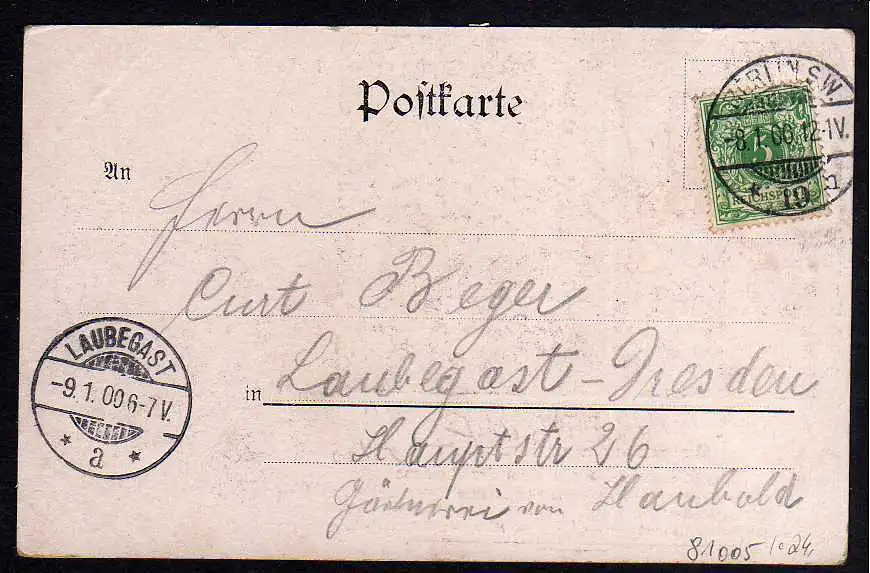 Postkarte
BERLIN SW.
-8.1.00.12-1V.
* 19
5
REICHSPOST
An
Herrn
Curt Beger
in Laubegast-Dresden
Hauptstr 26
Gärtnerei von Haubold
LAUBEGAST
-9.1.00 6-7 V.
* a *
81005